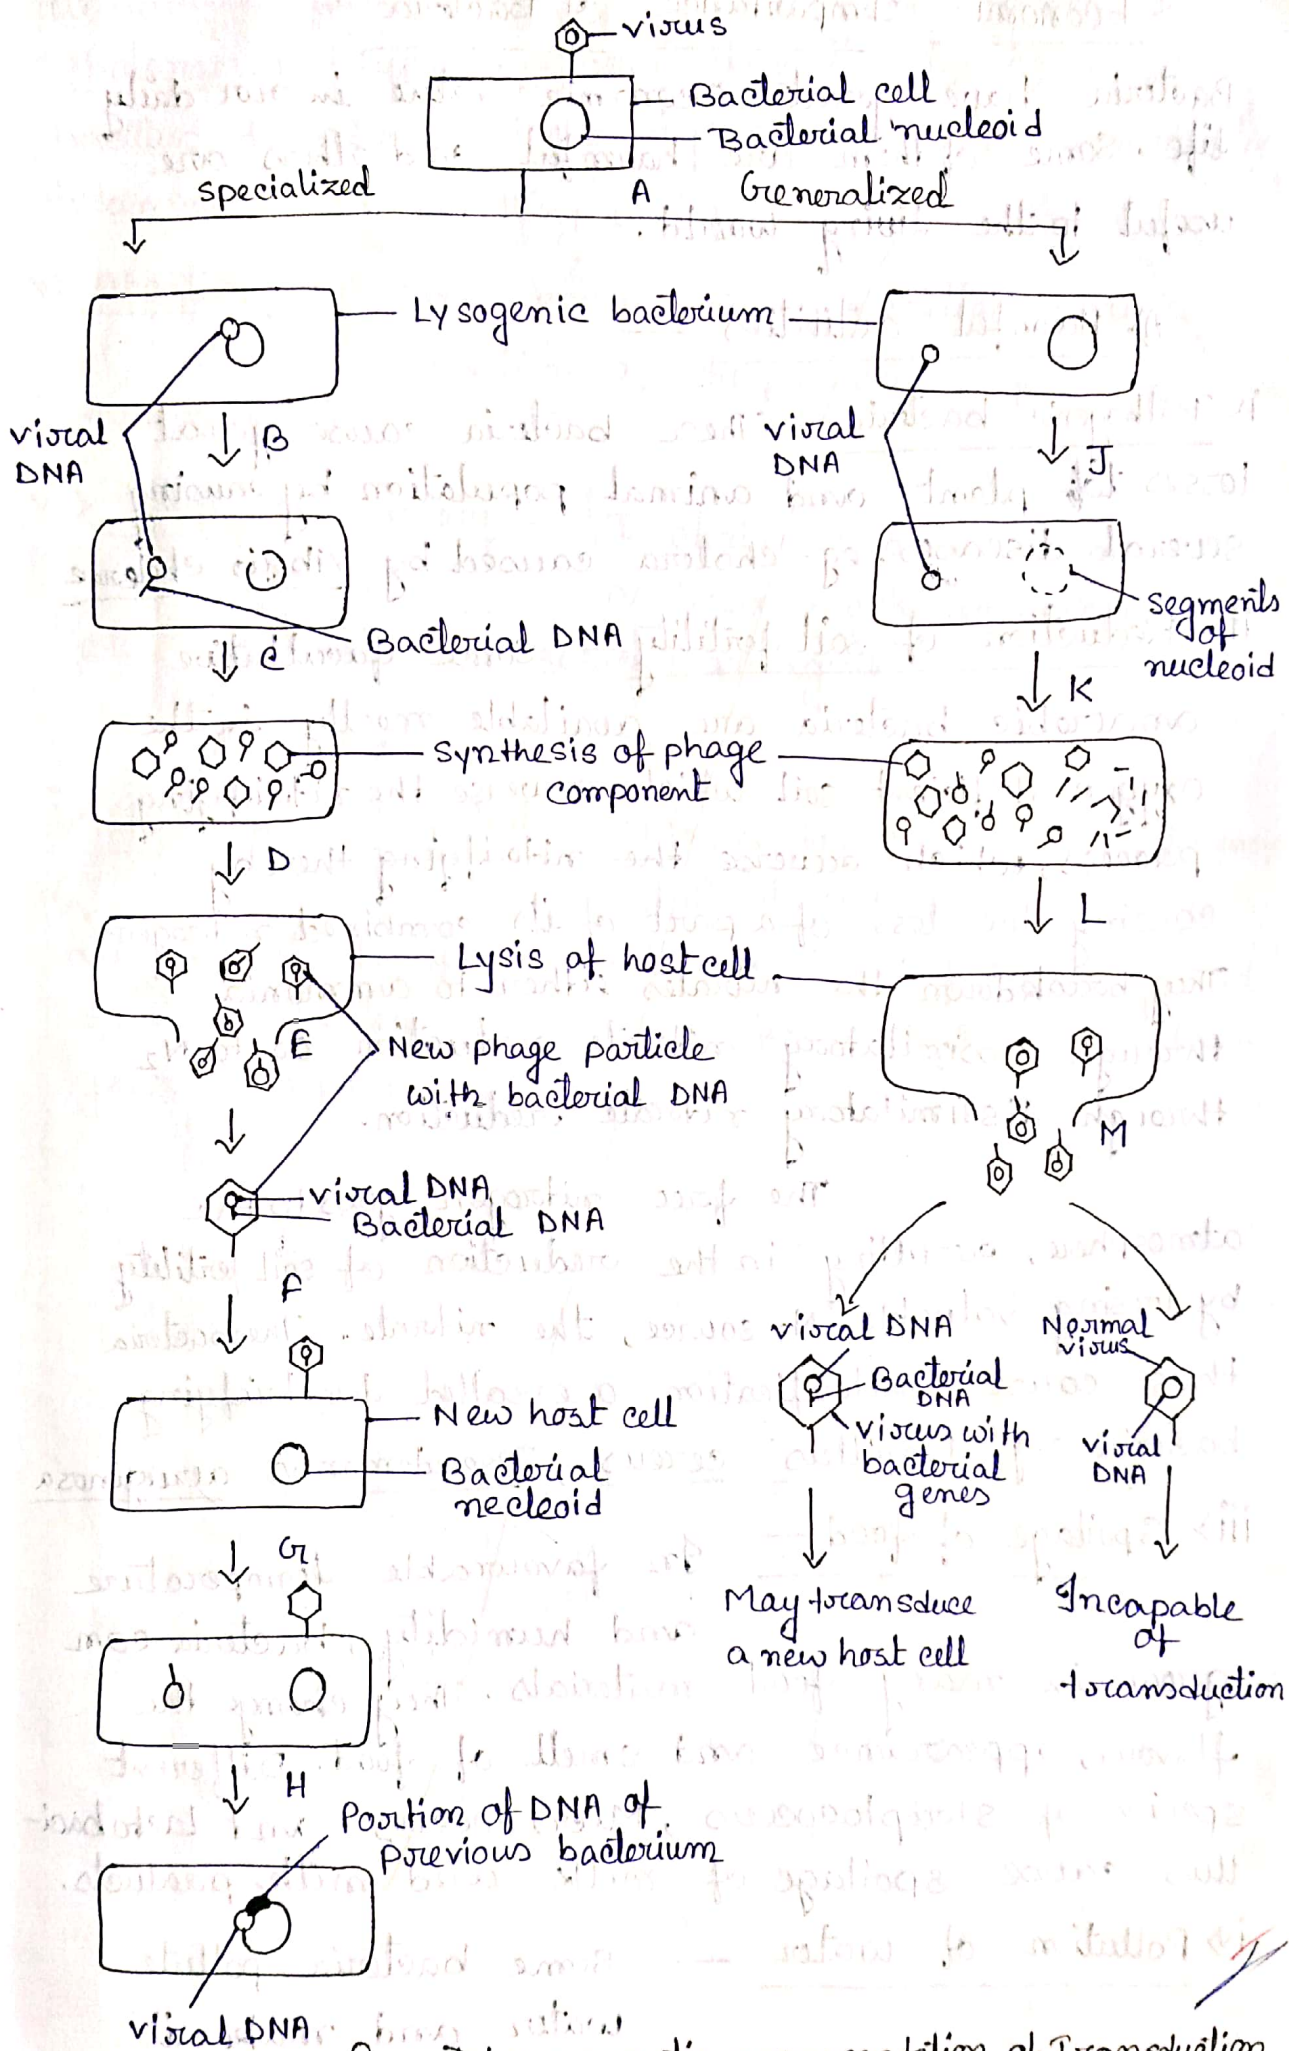 virus
Bacterial cell
Bacterial nucleoid
A
specialized
Generalized
Lysogenic bacterium
viral
DNA
B
viral
DNA
J
Bacterial DNA
C
segments
of
nucleoid
K
synthesis of phage
component
D
L
Lysis of host cell
E
New phage particle
with bacterial DNA
M
viral DNA
Bacterial DNA
F
viral DNA
Bacterial
DNA
virus with
bacterial
genes
Normal
virus
viral
DNA
New host cell
Bacterial
necleoid
G
May transduce
a new host cell
Incapable
of
transduction
H
Portion of DNA of
previous bacterium
viral DNA
of Transduction